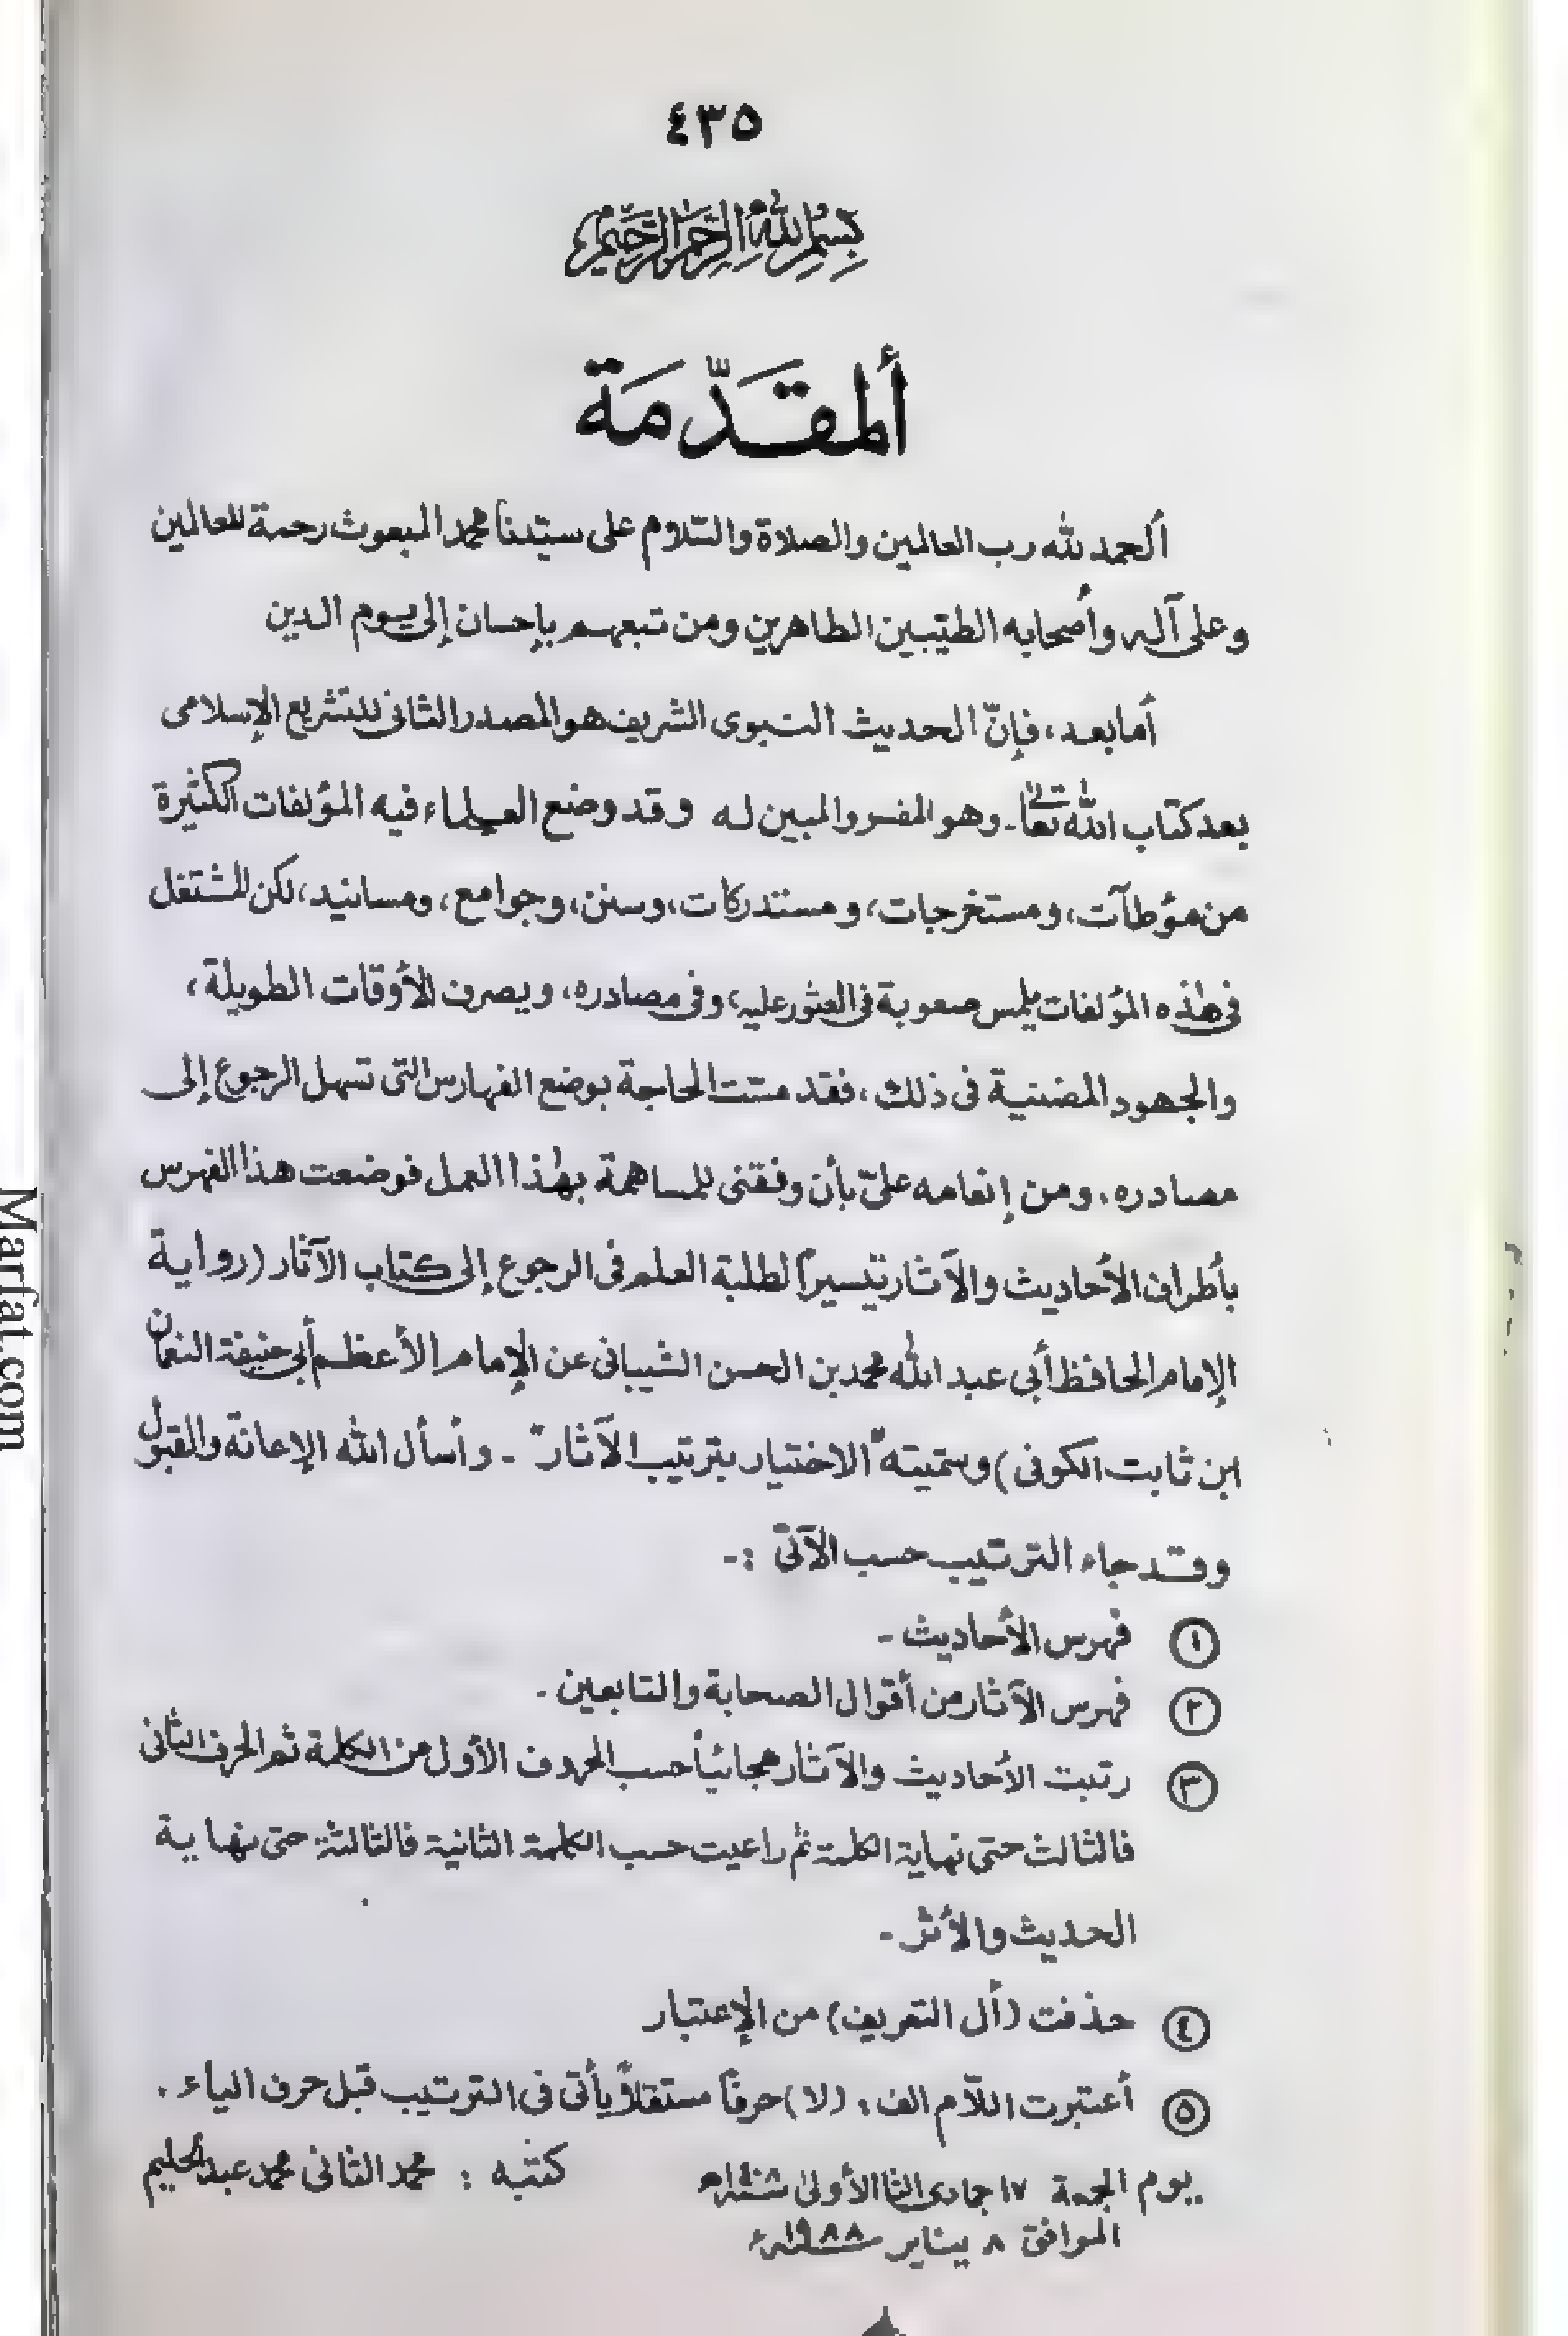 ٤٣٥
بِسْمِ اللهِ الرَّحْمٰنِ الرَّحِيْمِ
ألمقَدّمَة
ألحمد لله رب العالمين والصلاة والسّلام على سيّدنا محمد المبعوث رحمة للعالمين
وعلى آله وأصحابه الطيّبين الطاهرين ومن تبعهم بإحسان إلى يوم الدين
أما بعد، فإنّ الحديث النبوى الشريف هو المصدر الثانى للتشريع الإسلامى
بعد كتاب الله تعالى ـ وهو المفسر والمبين له وقد وضع العلماء فيه المؤلفات الكثيرة
من مؤطآت، ومستخرجات، ومستدركات، وسنن، وجوامع، ومسانيد، لكن المشتغل
فى هٰذه المؤلفات يلمس صعوبة فى العثور عليه، وفى مصادره، ويصرف الأوقات الطويلة،
والجهود المضنية فى ذلك، فقد مسّت الحاجة بوضع الفهارس التى تسهل الرجوع إلى
مصادره. ومن إنعامه علىّ بأن وفقنى للمساهمة بهٰذا العمل فوضعت هذا الفهرس
بأطراف الأحاديث والآثار تيسيراً لطلبة العلم فى الرجوع إلى كتاب الآثار (رواية
الإمام الحافظ أبى عبد الله محمد بن الحسن الشيبانى عن الإمام الأعظم أبى حنيفة النعمان
ابن ثابت الكوفى) وسمّيته "الاختيار بترتيب الآثار" ـ وأسأل الله الإعانة والقبول
وقد جاء الترتيب حسب الآتى :ـ
① فهرس الأحاديث ـ
② فهرس الآثار من أقوال الصحابة والتابعين ـ
③ رتبت الأحاديث والآثار هجائياً حسب الحروف الأول من الكلمة ثم الحرف الثانى
فالثالث حتى نهاية الكلمة ثم راعيت حسب الكلمة الثانية فالثالثة حتى نهاية
الحديث والأثر ـ
④ حذفت (أل التعريف) من الإعتبار
⑤ أعتبرت اللاّم الف، (لا) حرفاً مستقلاً يأتى فى الترتيب قبل حرف الياء.
يوم الجمعة ١٧ جمادى الأولىٰ سنة ١٤٠٨هـ كتبه : محمد الثانى محمد عبد الحليم
الموافق ٨ يناير سنة ١٩٨٨ء
Marfat.com